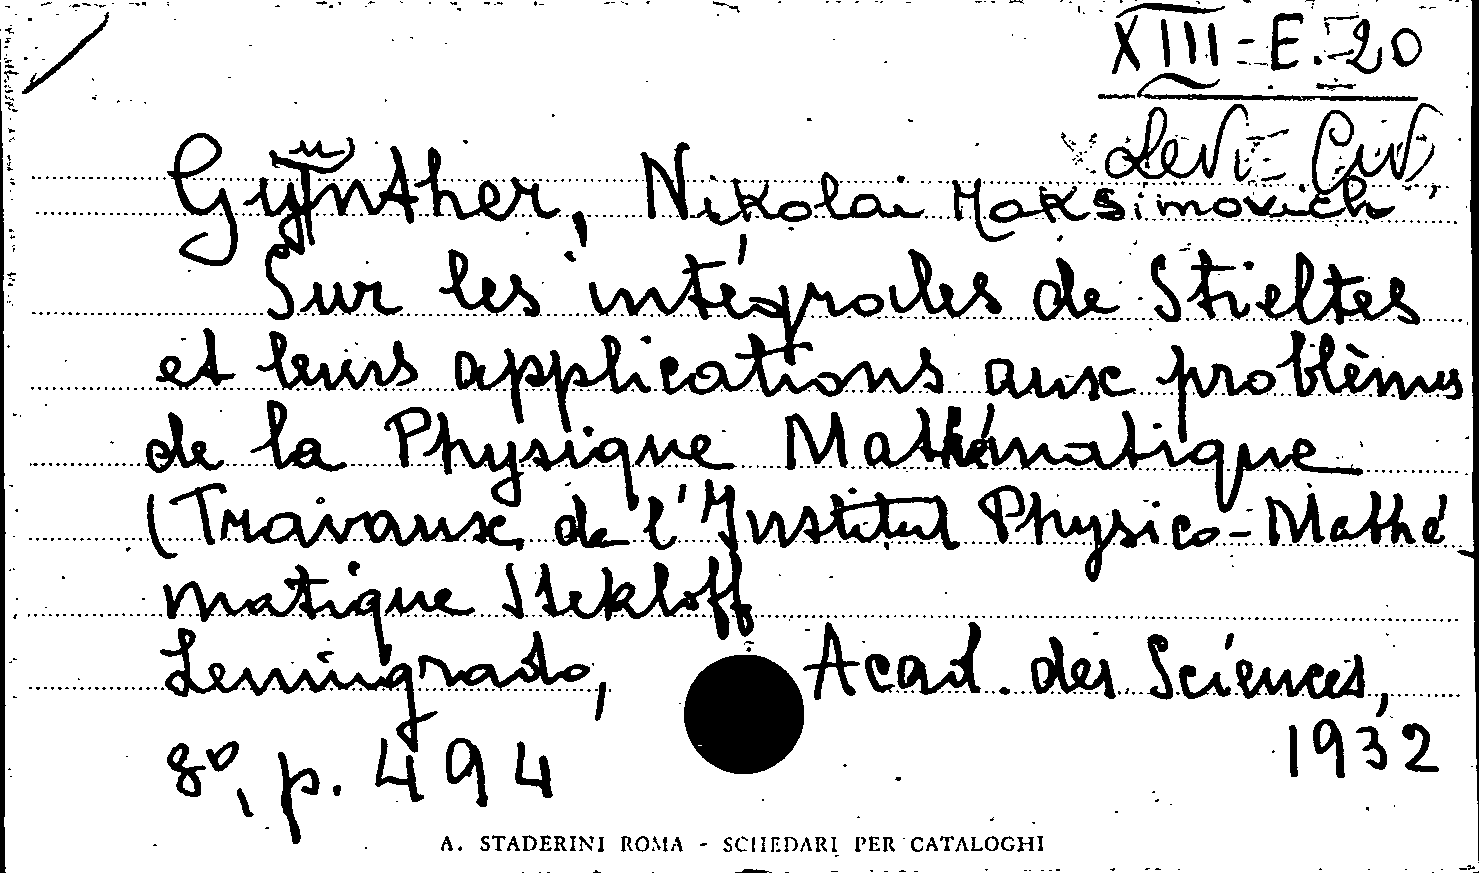 XIII-E.-20
Levi-Civ.
Gyünther, Nikolai Maksimovich
Sur les intégrales de Stieltes
et leurs applications aux problèmes
de la Physique Mathématique
(Travaux de l'Institut Physico-Mathé
matique Stekloff
Leningrado, Acad. des Sciences,
8º, p. 494 1932
A. STADERINI ROMA - SCHEDARI PER CATALOGHI